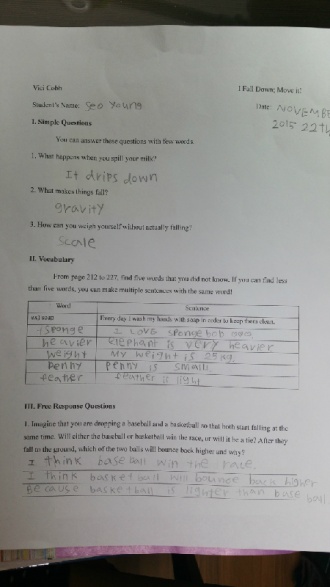 Vici Cobb
I Fall Down; Move it!
Student's Name: Seo Young
Date: NOVEMBE
2015 22th
I. Simple Questions
You can answer these questions with few words.
1. What happens when you spill your milk?
It drips down
2. What makes things fall?
gravity
3. How can you weigh yourself without actually falling?
Scale
II. Vocabulary
From page 212 to 227, find five words that you did not know. If you can find less
than five words, you can make multiple sentences with the same word!
Word Sentence
Every day I wash my hands with soap in order to keep them clean.
sponge I LOVE sponge bob
heavier elephant is very heavier
weight My weight is 25 kg
penny penny is small
feather feather is
III. Free Response Questions
1. Imagine that you are dropping a baseball and a basketball so that both start falling at the
same time. Will either the baseball or basketball win the race, or will it be a tie? After they
fall to the ground, which of the two balls will bounce back higher and why?
I think base ball win the race.
I think basketball will bounce back higher
Because basketball is lighter than base ball